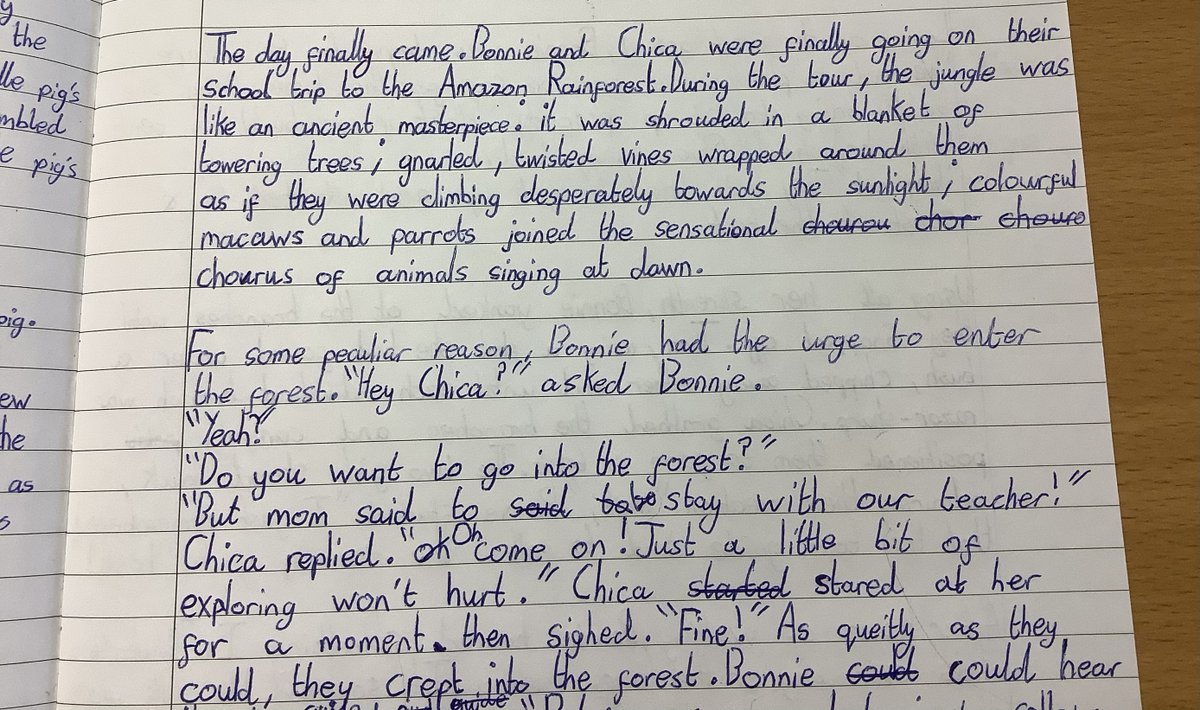 y
the
lle pig's
mbled
e pig's
pig.
ew
he
as
s
The day finally came. Bonnie and Chica were finally going on their
school trip to the Amazon Rainforest. During the tour, the jungle was
like an ancient masterpiece. it was shrouded in a blanket of
towering trees; gnarled, twisted vines wrapped around them
as if they were climbing desperately towards the sunlight; colourful
macaws and parrots joined the sensational choureu chor chouro
chourus of animals singing at dawn.
For some peculiar reason, Bonnie had the urge to enter
the forest. "Hey Chica?" asked Bonnie.
"Yeah?"
"Do you want to go into the forest?"
"But mom said to said stay with our teacher!"
Chica replied. "oh Oh come on! Just a little bit of
exploring won't hurt." Chica started stared at her
for a moment. then sighed. "Fine!" As queitly as they
could, they crept into the forest. Bonnie could could hear